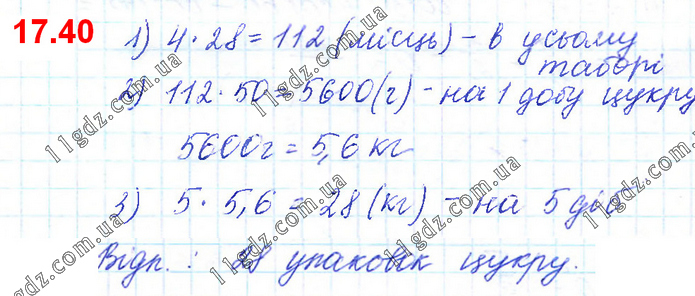 17.40
1) 4·28=112 (місць) – в усьому
таборі
2) 112·50=5600(г) – на 1 добу цукру
5600г=5,6 кг
3) 5·5,6=28(кг) – на 5 діб.
Відп.: 28 упаковок цукру.
11gdz.com.ua
11gdz.com.ua
11gdz.com.ua
11gdz.com.ua
11gdz.com.ua
11gdz.com.ua